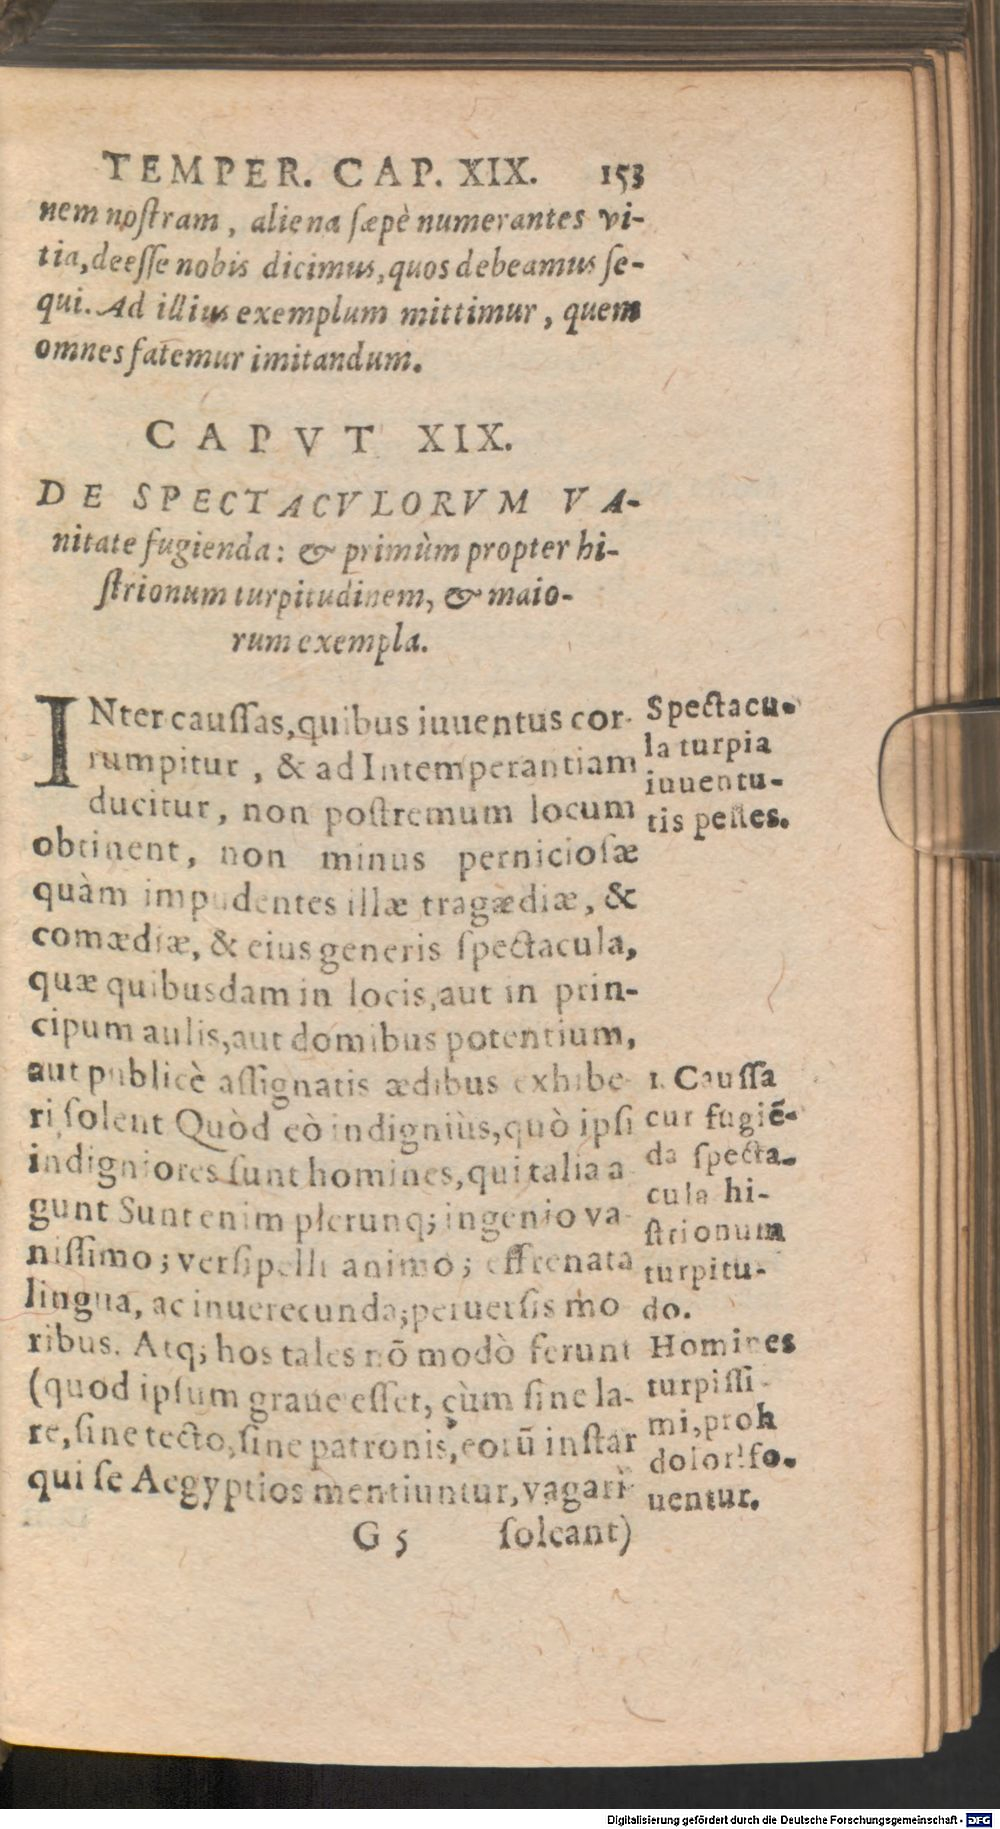 TEMPER. CAP. XIX. 153
nem noſtram, aliena ſæpè numerantes vi-
tia, deeſſe nobis dicimus, quos debeamus ſe-
qui. Ad illius exemplum mittimur, quem
omnes fatemur imitandum.
CAPVT XIX.
DE SPECTACVLORVM VA-
nitate fugienda: & primùm propter hi-
ſtrionum turpitudinem, & maio-
rum exempla.
INter cauſſas, quibus iuuentus cor-
rumpitur, & ad Intemperantiam
ducitur, non poſtremum locum
obtinent, non minus pernicioſæ
quàm impudentes illæ tragædiæ, &
comædiæ, & eius generis ſpectacula,
quæ quibusdam in locis, aut in prin-
cipum aulis, aut domibus potentium,
aut publicè aſſignatis ædibus exhibe-
ri ſolent Quòd eò indigniùs, quò ipſi
indigniores ſunt homines, qui talia a-
gunt Sunt enim plerunq; ingenio va-
niſſimo; verſipelli animo; effrenata
lingua, ac inuerecunda; peruerſis mo
ribus. Atq; hos tales nō modò ferunt
(quod ipſum graue eſſet, cùm ſine la-
re, ſine tecto, ſine patronis, eorū inſtar
qui ſe Aegyptios mentiuntur, vagari
G 5 ſoleant)
Spectacu-
la turpia
iuuentu-
tis peſtes.
1. Cauſſa
cur fugiē-
da ſpecta-
cula hi-
ſtrionum
turpitu-
do.
Homines
turpiſſi-
mi, proh
dolor! fo-
uentur.
Digitalisierung gefördert durch die Deutsche Forschungsgemeinschaft - DFG